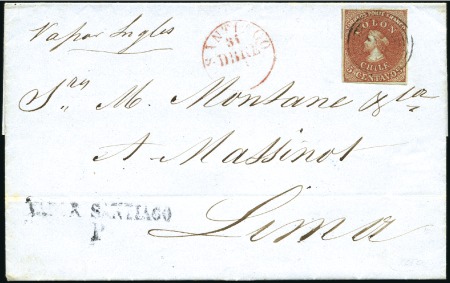 Vapor Ingles
SANTIAGO
31
DBRE
COLON
CHILE
5 CENTAVOS
Sres M. Montane & Cia
A Massinot
Lima
VAPOR SANTIAGO
P